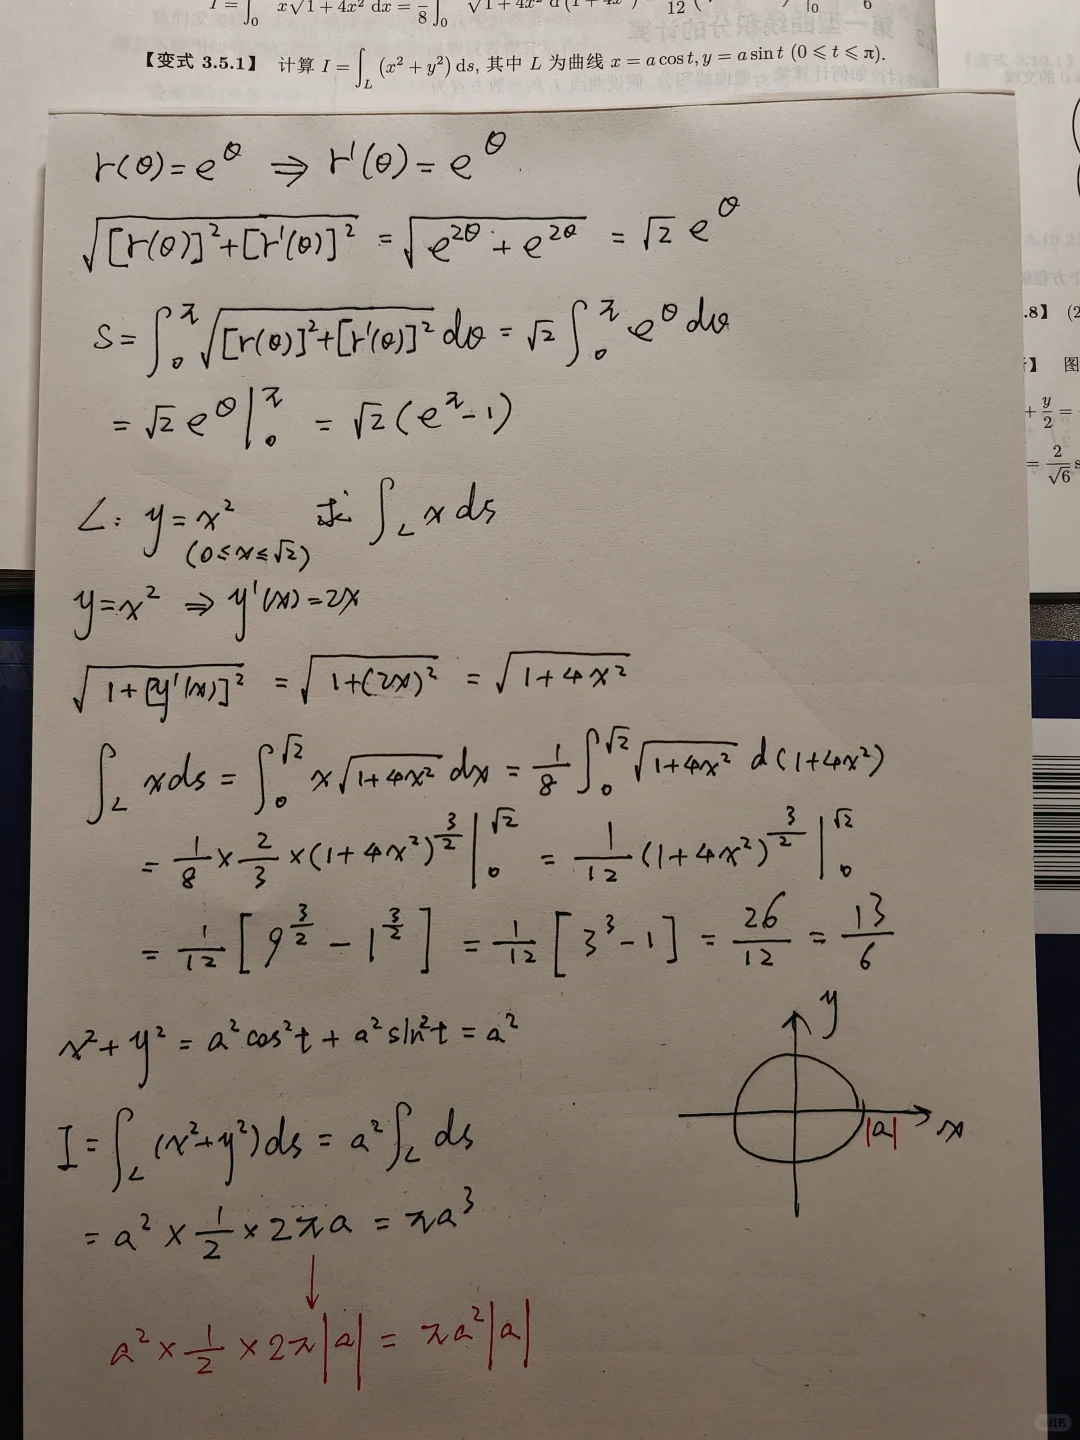 I = ∫₀ x√1+4x² dx = 1/8 ∫₀ √1+4x² d(1+4x²) 12 |₀ 6
【变式 3.5.1】 计算 I = ∫_L (x² + y²) ds, 其中 L 为曲线 x = a cos t, y = a sin t (0 ⩽ t ⩽ π).
r(θ) = e^θ ⇒ r'(θ) = e^θ
√([r(θ)]² + [r'(θ)]²) = √(e^{2θ} + e^{2θ}) = √2 e^θ
S = ∫₀^π √([r(θ)]² + [r'(θ)]²) dθ = √2 ∫₀^π e^θ dθ
= √2 e^θ |₀^π = √2 (e^π - 1)
L: y = x² 求 ∫_L x ds
(0 ≤ x ≤ √2)
y = x² ⇒ y'(x) = 2x
√(1 + [y'(x)]²) = √(1 + (2x)²) = √(1 + 4x²)
∫_L x ds = ∫₀^{√2} x √(1+4x²) dx = 1/8 ∫₀^{√2} √(1+4x²) d(1+4x²)
= 1/8 × 2/3 × (1+4x²)^{3/2} |₀^{√2} = 1/12 (1+4x²)^{3/2} |₀^{√2}
= 1/12 [9^{3/2} - 1^{3/2}] = 1/12 [3³ - 1] = 26/12 = 13/6
x² + y² = a² cos² t + a² sin² t = a²
I = ∫_L (x² + y²) ds = a² ∫_L ds
= a² × 1/2 × 2πa = πa³
a² × 1/2 × 2π|a| = πa²|a|
y
|a|
x
.8】 (2
】 图
+ y/2 =
= 2/√6 s